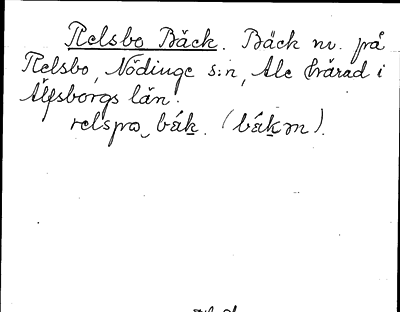 Relsbo Bäck. Bäck nv. på
Relsbo, Nödinge s:n, Ale härad i
Älfsborgs län.
relspo bák. (bákən).